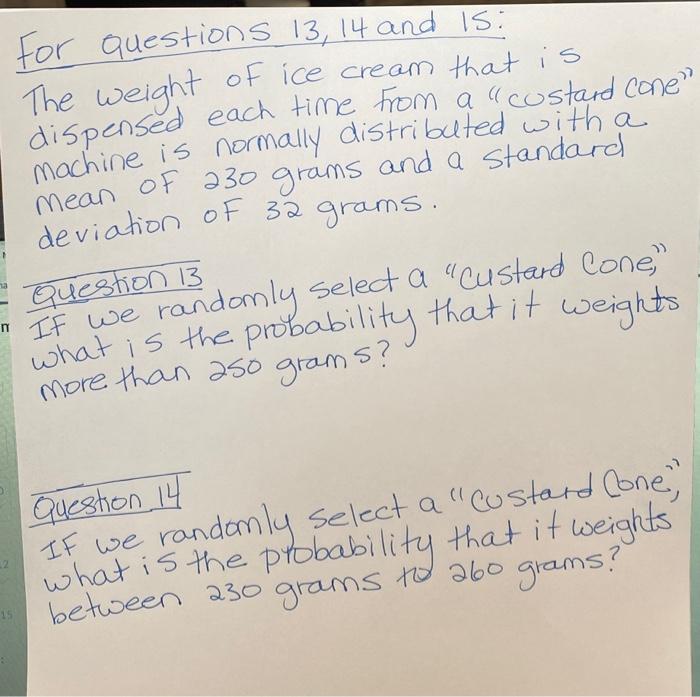 For questions 13, 14 and 15:
The weight of ice cream that is
dispensed each time from a "custard cone"
machine is normally distributed with a
mean of 230 grams and a standard
deviation of 32 grams.
Question 13
If we randomly select a "Custard Cone,"
what is the probability that it weights
more than 250 grams?
Question 14
If we randomly select a "Custard Cone,"
what is the probability that it weights
between 230 grams to 260 grams?